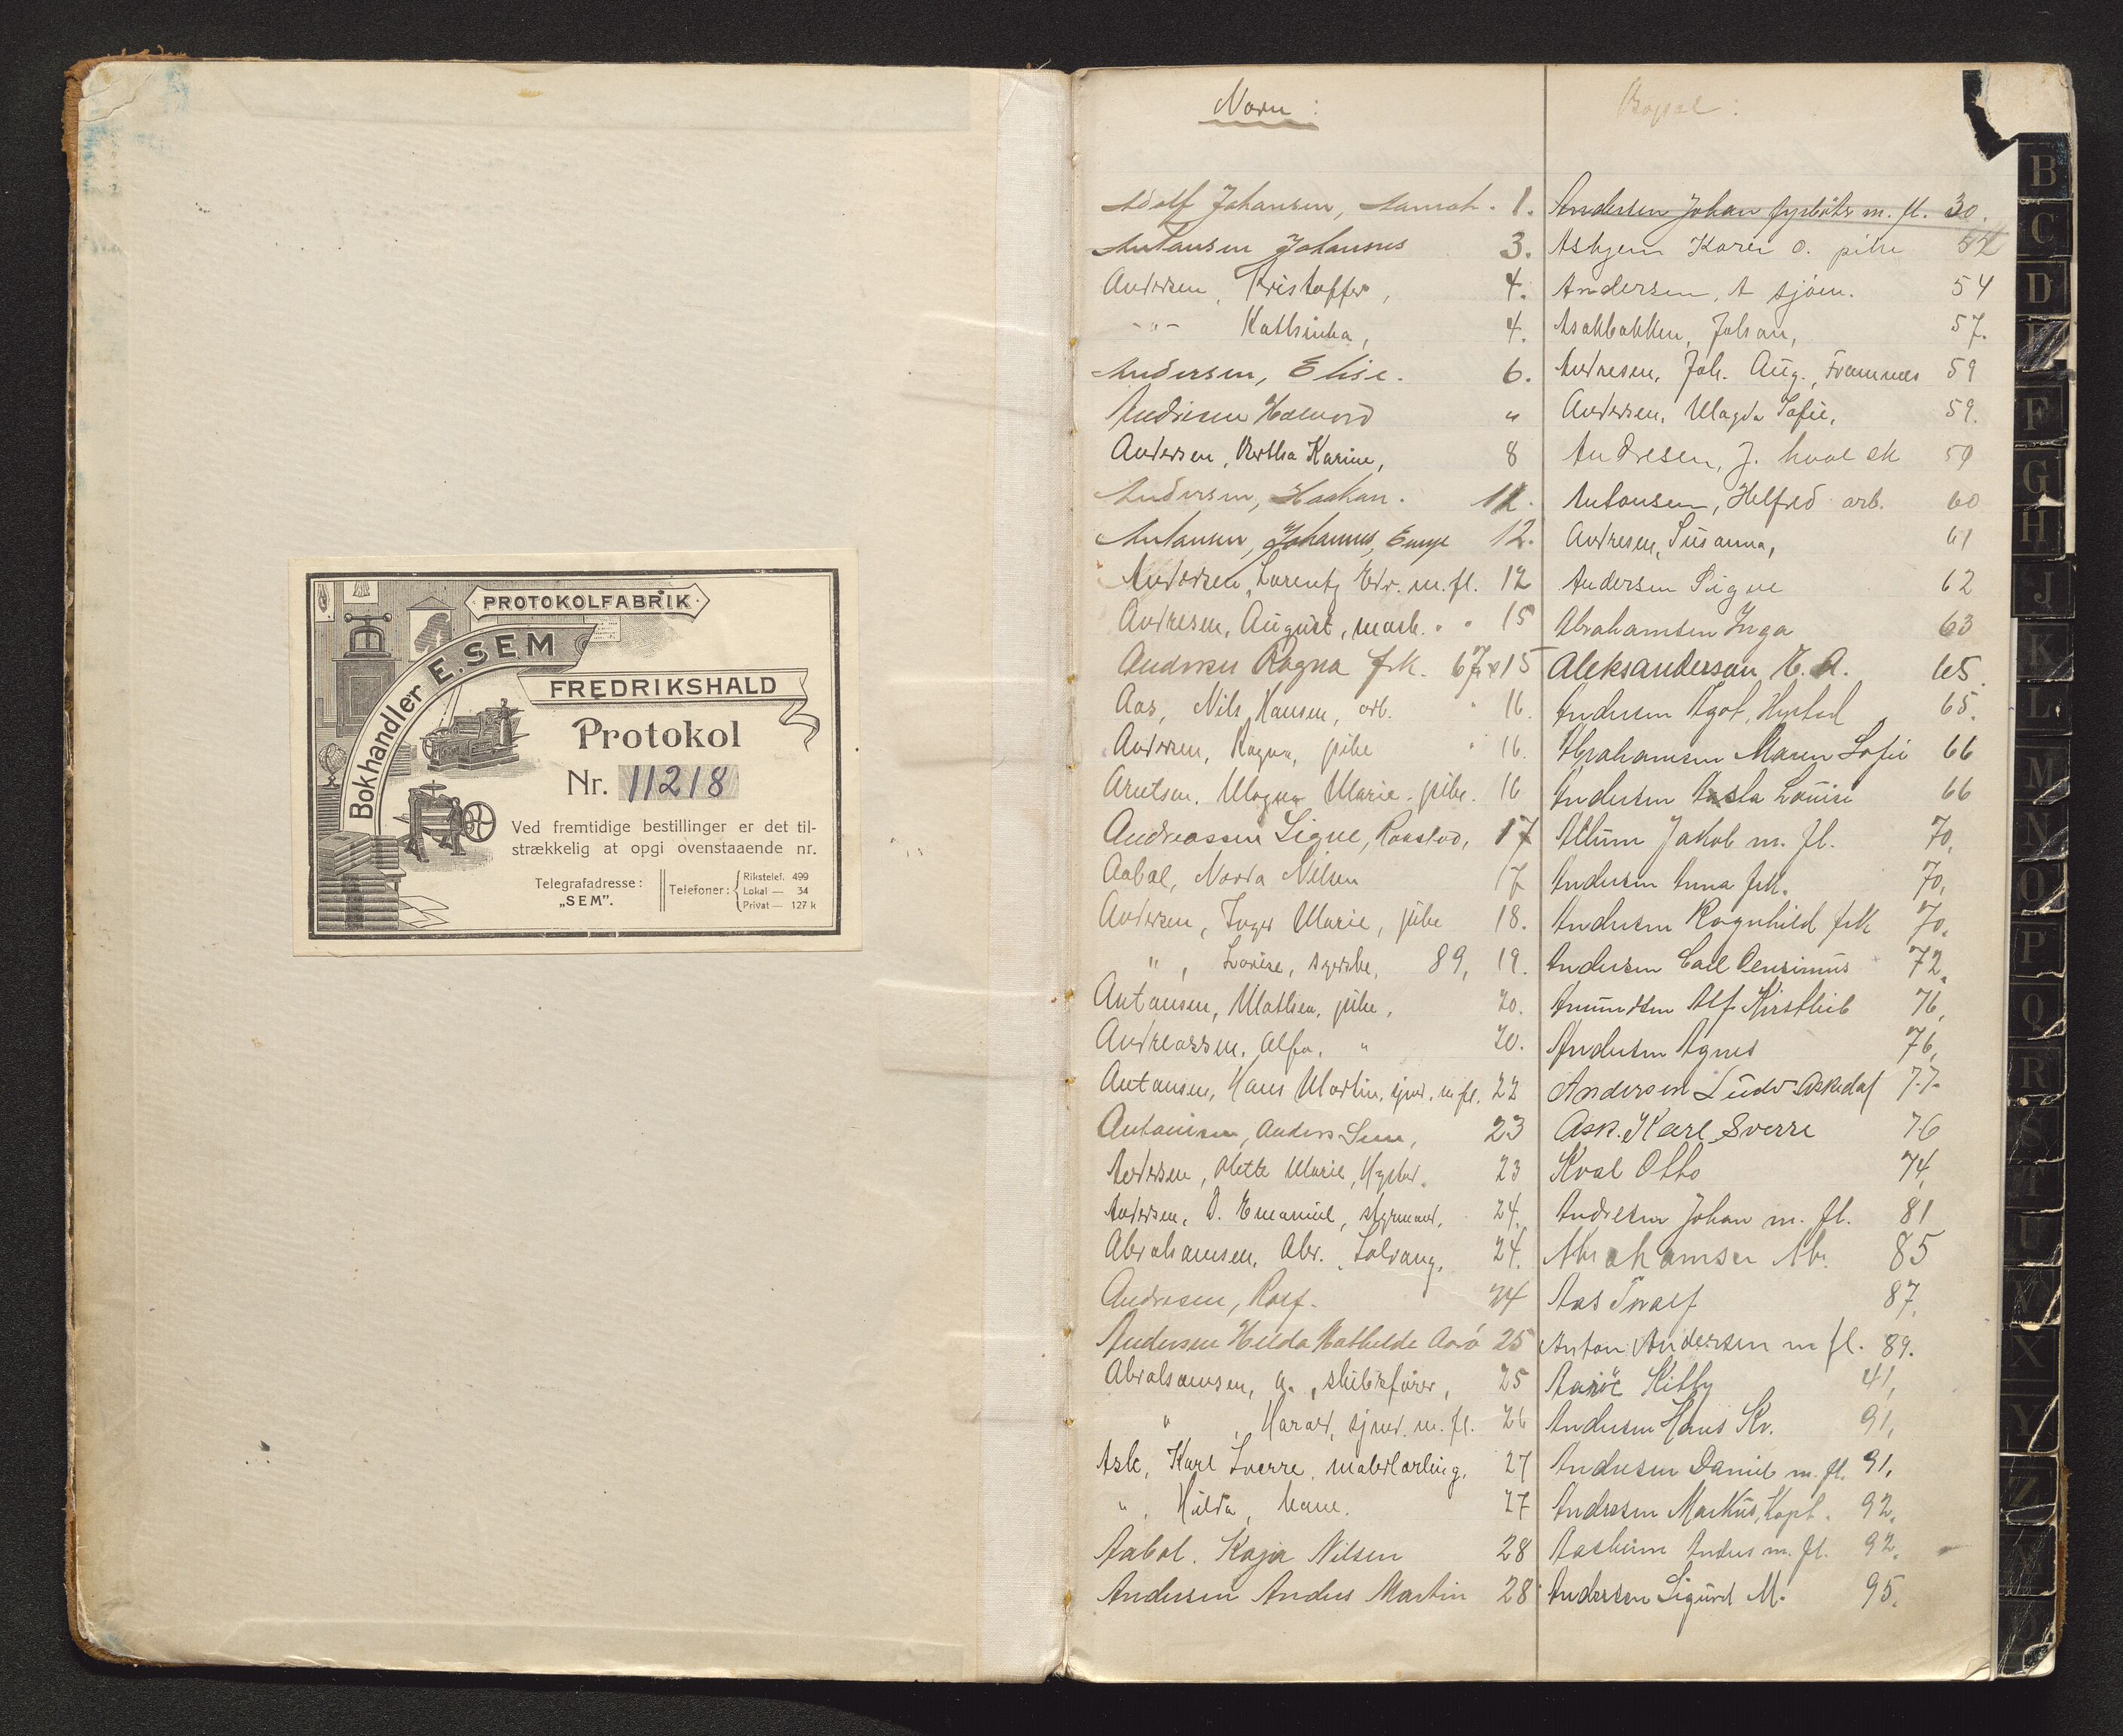 PROTOKOLFABRIK
Bokhandler E. SEM
FREDRIKSHALD
Protokol
Nr. 11218
Ved fremtidige bestillinger er det til-
strækkelig at opgi ovenstaaende nr.
Telegrafadresse: „SEM”.
Telefoner: Rikstelef. 499
Lokal — 34
Privat — 127 k
Navn:
Bopæl:
Adolf Johansen, 1.
Antonsen Johannes 3.
Andersen, Kristoffer, 4.
-"- Kathinka, 4.
Andersen, Elise. 6.
Andresen Halvard "
Andersen, Bertha Karine, 8
Andersen, Haakon. 12.
Antonsen, Johannes, 12.
Andersen, Lorentz Edv. m. fl. 12
Andresen, August, 15
Andersen Ragna frk. 67 × 15
Aas, Nils Hansen, arb. 16.
Andersen, Ragna, pike 16.
Arntsen, Magna Marie, pike. 16
Andreassen Signe, Raastad, 17
Aabol, Nilsen 17
Andersen, Inger Marie, pike 18.
" , Lovise, syerske, 89, 19.
Antonsen, Mathea, pike, 20.
Andreassen, Alfa, " 20.
Antonsen, Hans Martin, sjmd. m. fl. 22
Antonisen, Anders Sem, 23
Andersen, Mette Marie, Hystad. 23
Andersen, D. Emanuel, styrmand, 24.
Abrahamsen, Abr. Solvang, 24.
Andresen, Rolf. 24
Andersen Hilda Mathilde Aarø 25
Abrahamsen, A., skibsfører, 25
" , Harald, sjmd. m. fl. 26
Ask, Karl Sverre, malerlærling, 27
" , Hilda, 27
Aabol. Kaja Nilsen 28
Andersen Anders Martin 28
Andersen Johan fyrbøter m. fl. 30.
Askjem Karen O. pike 52
Andersen, A sjöm. 54
Johan, 57.
Andresen, Joh. Aug., Framnæs 59
Andersen, Magda Sofie, 59.
Andresen, J. 59
Antonsen, Helfred arb. 60
Andresen, Susanna, 61
Andersen Signe 62
Abrahamsen Inga 63
Aleksanderson E. A. 65.
Andersen Agot, Hystad 65.
Abrahamsen Maren Sofie 66
Andersen Asla Louise 66
Allum Jakob m. fl. 70,
Andersen Anna frk. 70,
Andersen Ragnhild frk 70,
Andersen Carl 72,
Amundsen Alf Kirstleib 76,
Andersen Agnes 76,
Andersen Ludv. Askedal 77.
Ask. Karl Sverre 76
Kval Otto 74,
Andresen Johan m. fl. 81
Abrahamsen Abr. 85
Aas Toralf 87,
Anton Andersen m fl. 89.
Aarøe Kitty 41,
Andersen Hans Kr. 91,
Andresen Daniel m. fl. 91,
Andresen Markus, Kapt. 92,
Aasheim Anders m. fl. 92,
Andersen Sigurd M. 95.
B
C
D
F
G
H
J
K
L
M
N
O
P
Q
R
S
T
U
V
X
Y
Z